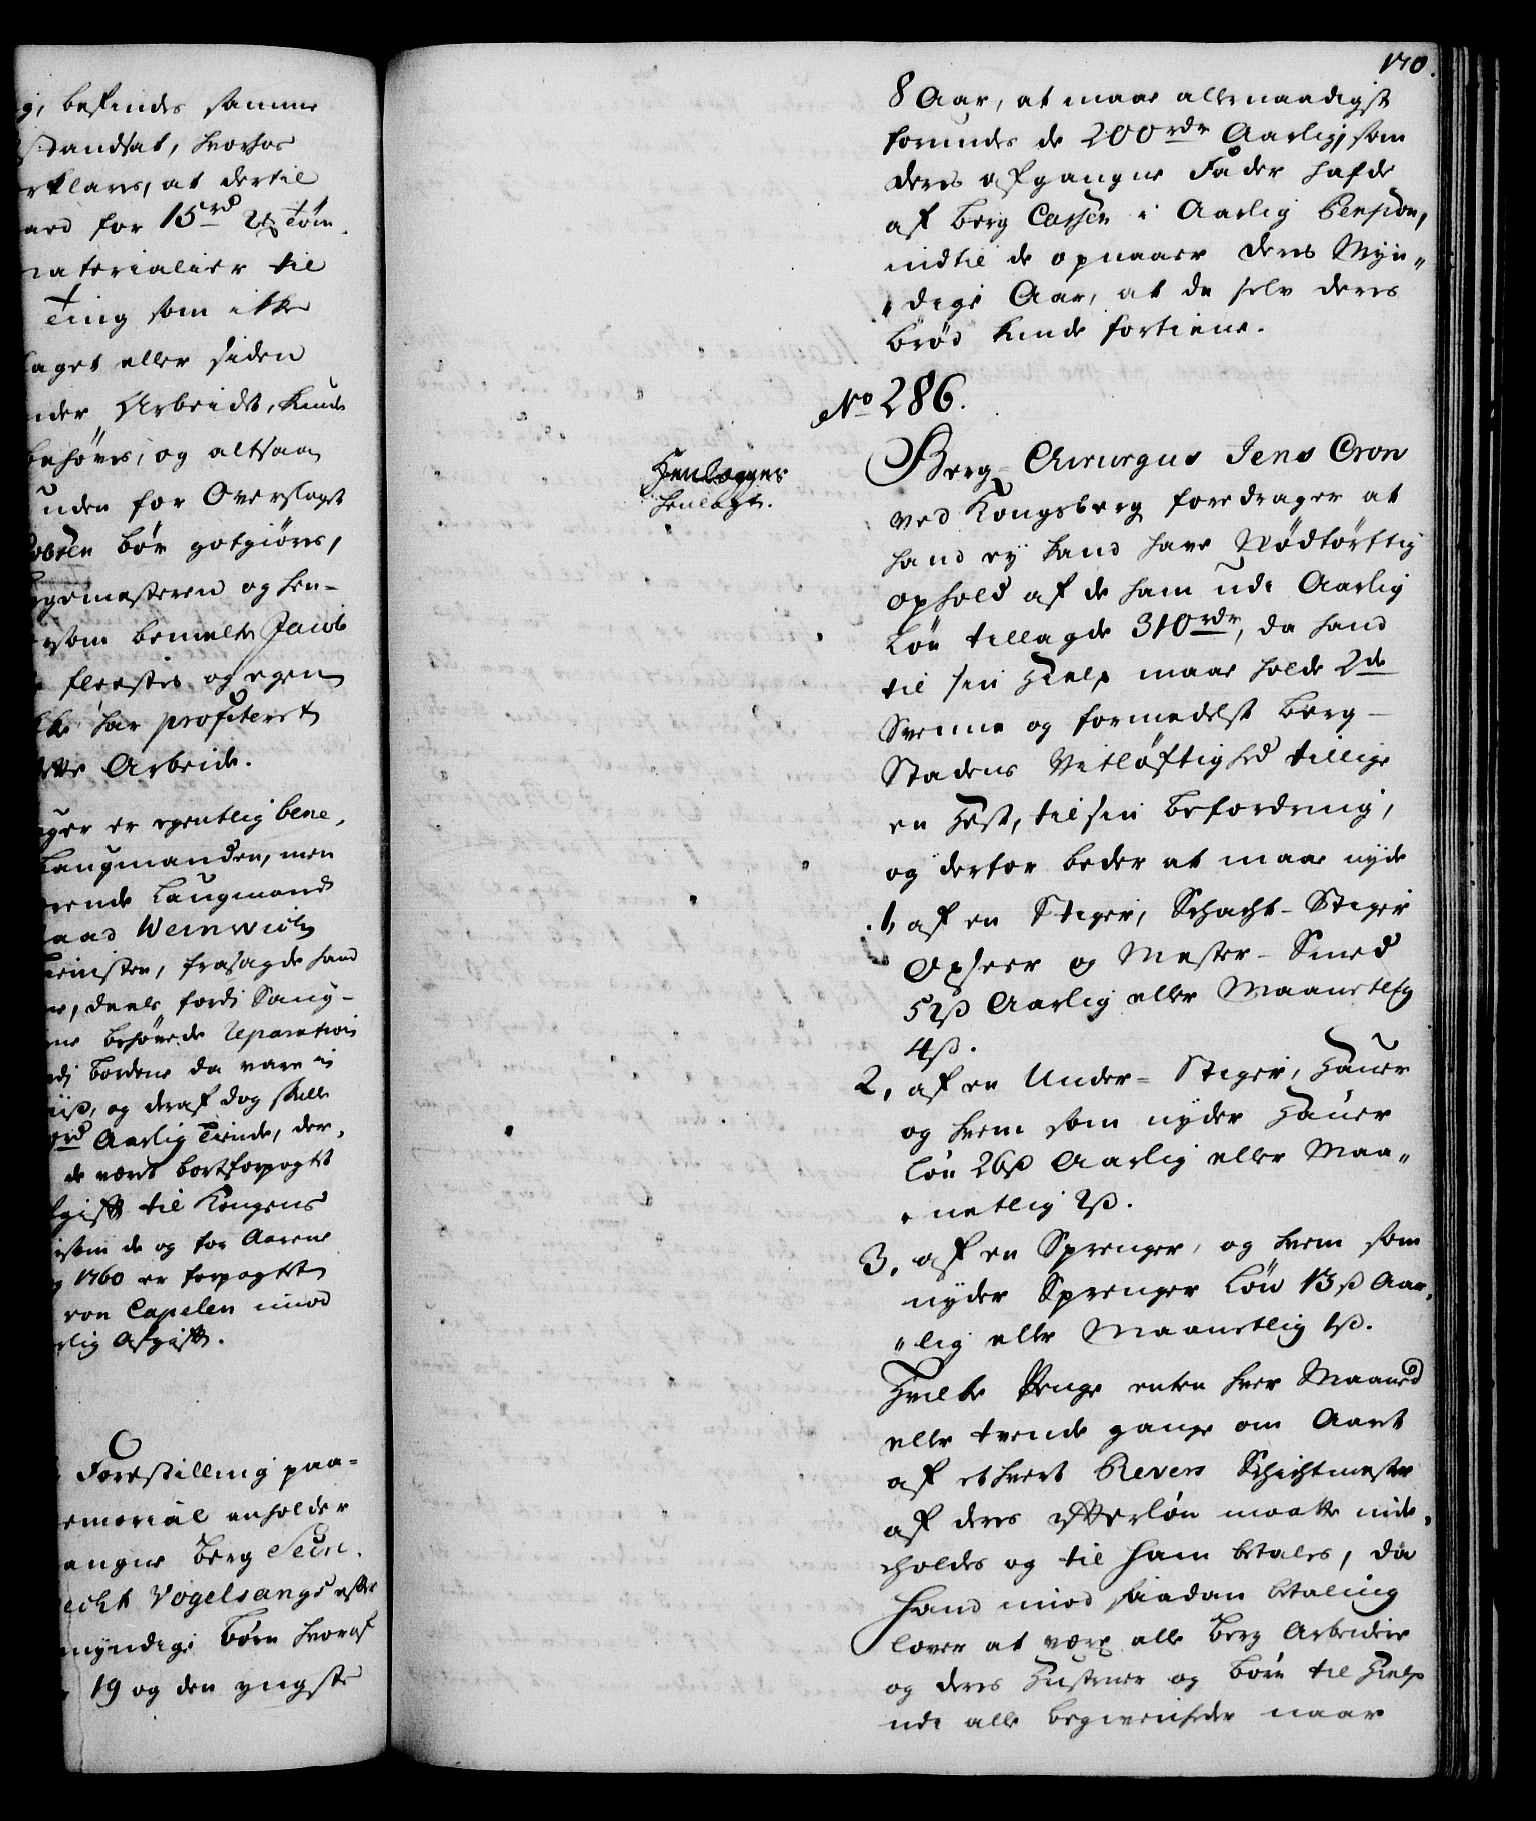 g, befindes samme
standsat, hvorhos
rklares, at dertil
ard for 15 rd
materialier til
Ting som ikke
aget eller siden
nder Arbeidet, kunde
behøves, og altsaa
uden for Overslaget
bør godtgiøres,
gemesteren og hen-
som bemelte Jacob
fleeste, og egen
har profiteret
Arbeide.
ger er egentlig bene,
Laugmanden, men
rende Laugmand
aad Weinwich
ienesten, frasagde hand
, deels fordi Saug-
ne behøvede Reparation
di Bordene da vare i
iis, og deraf dog skulle
rd Aarlig Tiende, der,
de været bortforpagtet
gift til Kongens
som de og for Aarene
1760 er forpagtet
von Capelen imod
rlig Afgift.
Forestilling paa-
emorial anholder
angne Berg Secr.
echt Vogelsangs efter
myndige Børn hvoraf
19 og den yngste
170.
8 Aar, at maae allernaadigst
forundes de 200 rdr Aarlig, som
deres afgangne Fader hafde
af Berg Cassen i Aarlig Pension,
indtil de opnaaer deres Myn„
„dige Aar, at de selv deres
Brød kunde fortiene.
No 286.
Henlægges
henlagt.
Berg-Chirurgus Jens Cron
ved Kongsberg foredrager at
hand ey kand have Nødtørftig
ophold af de ham udi Aarlig
Løn tillagde 310 rdr, da hand
til sin Hielp maae holde 2de
Svenne og formedelst Berg-
Stadens Vitløftighed tillige
en Hest, til sin Befordring,
og derfor beder at maae nyde
1, af en Stiger, Schacht-Stiger
Opseer og Mester-Smed
52 ß Aarlig eller Maanetlig
4 ß.
2, af en Under-Stiger, Hauer
og hvem som nyder Hauer
Løn 26 ß Aarlig eller Maa„
„netlig 2 ß.
3, af en Sprenger, og hvem som
nyder Sprenger Løn 13 ß Aar„
„lig eller Maanetlig 1 ß.
Hvilke Penge enten hver Maaned
eller trende gange om Aaret
af ethvert Revers Schichtmester
af deres otterløn maatte inde„
holdes og til ham betales, da
Hand imod saadan betaling
lover at være alle Berg Arbeidere
og deres Hustruer og Børn til Hielp
udi alle begivenheder naar